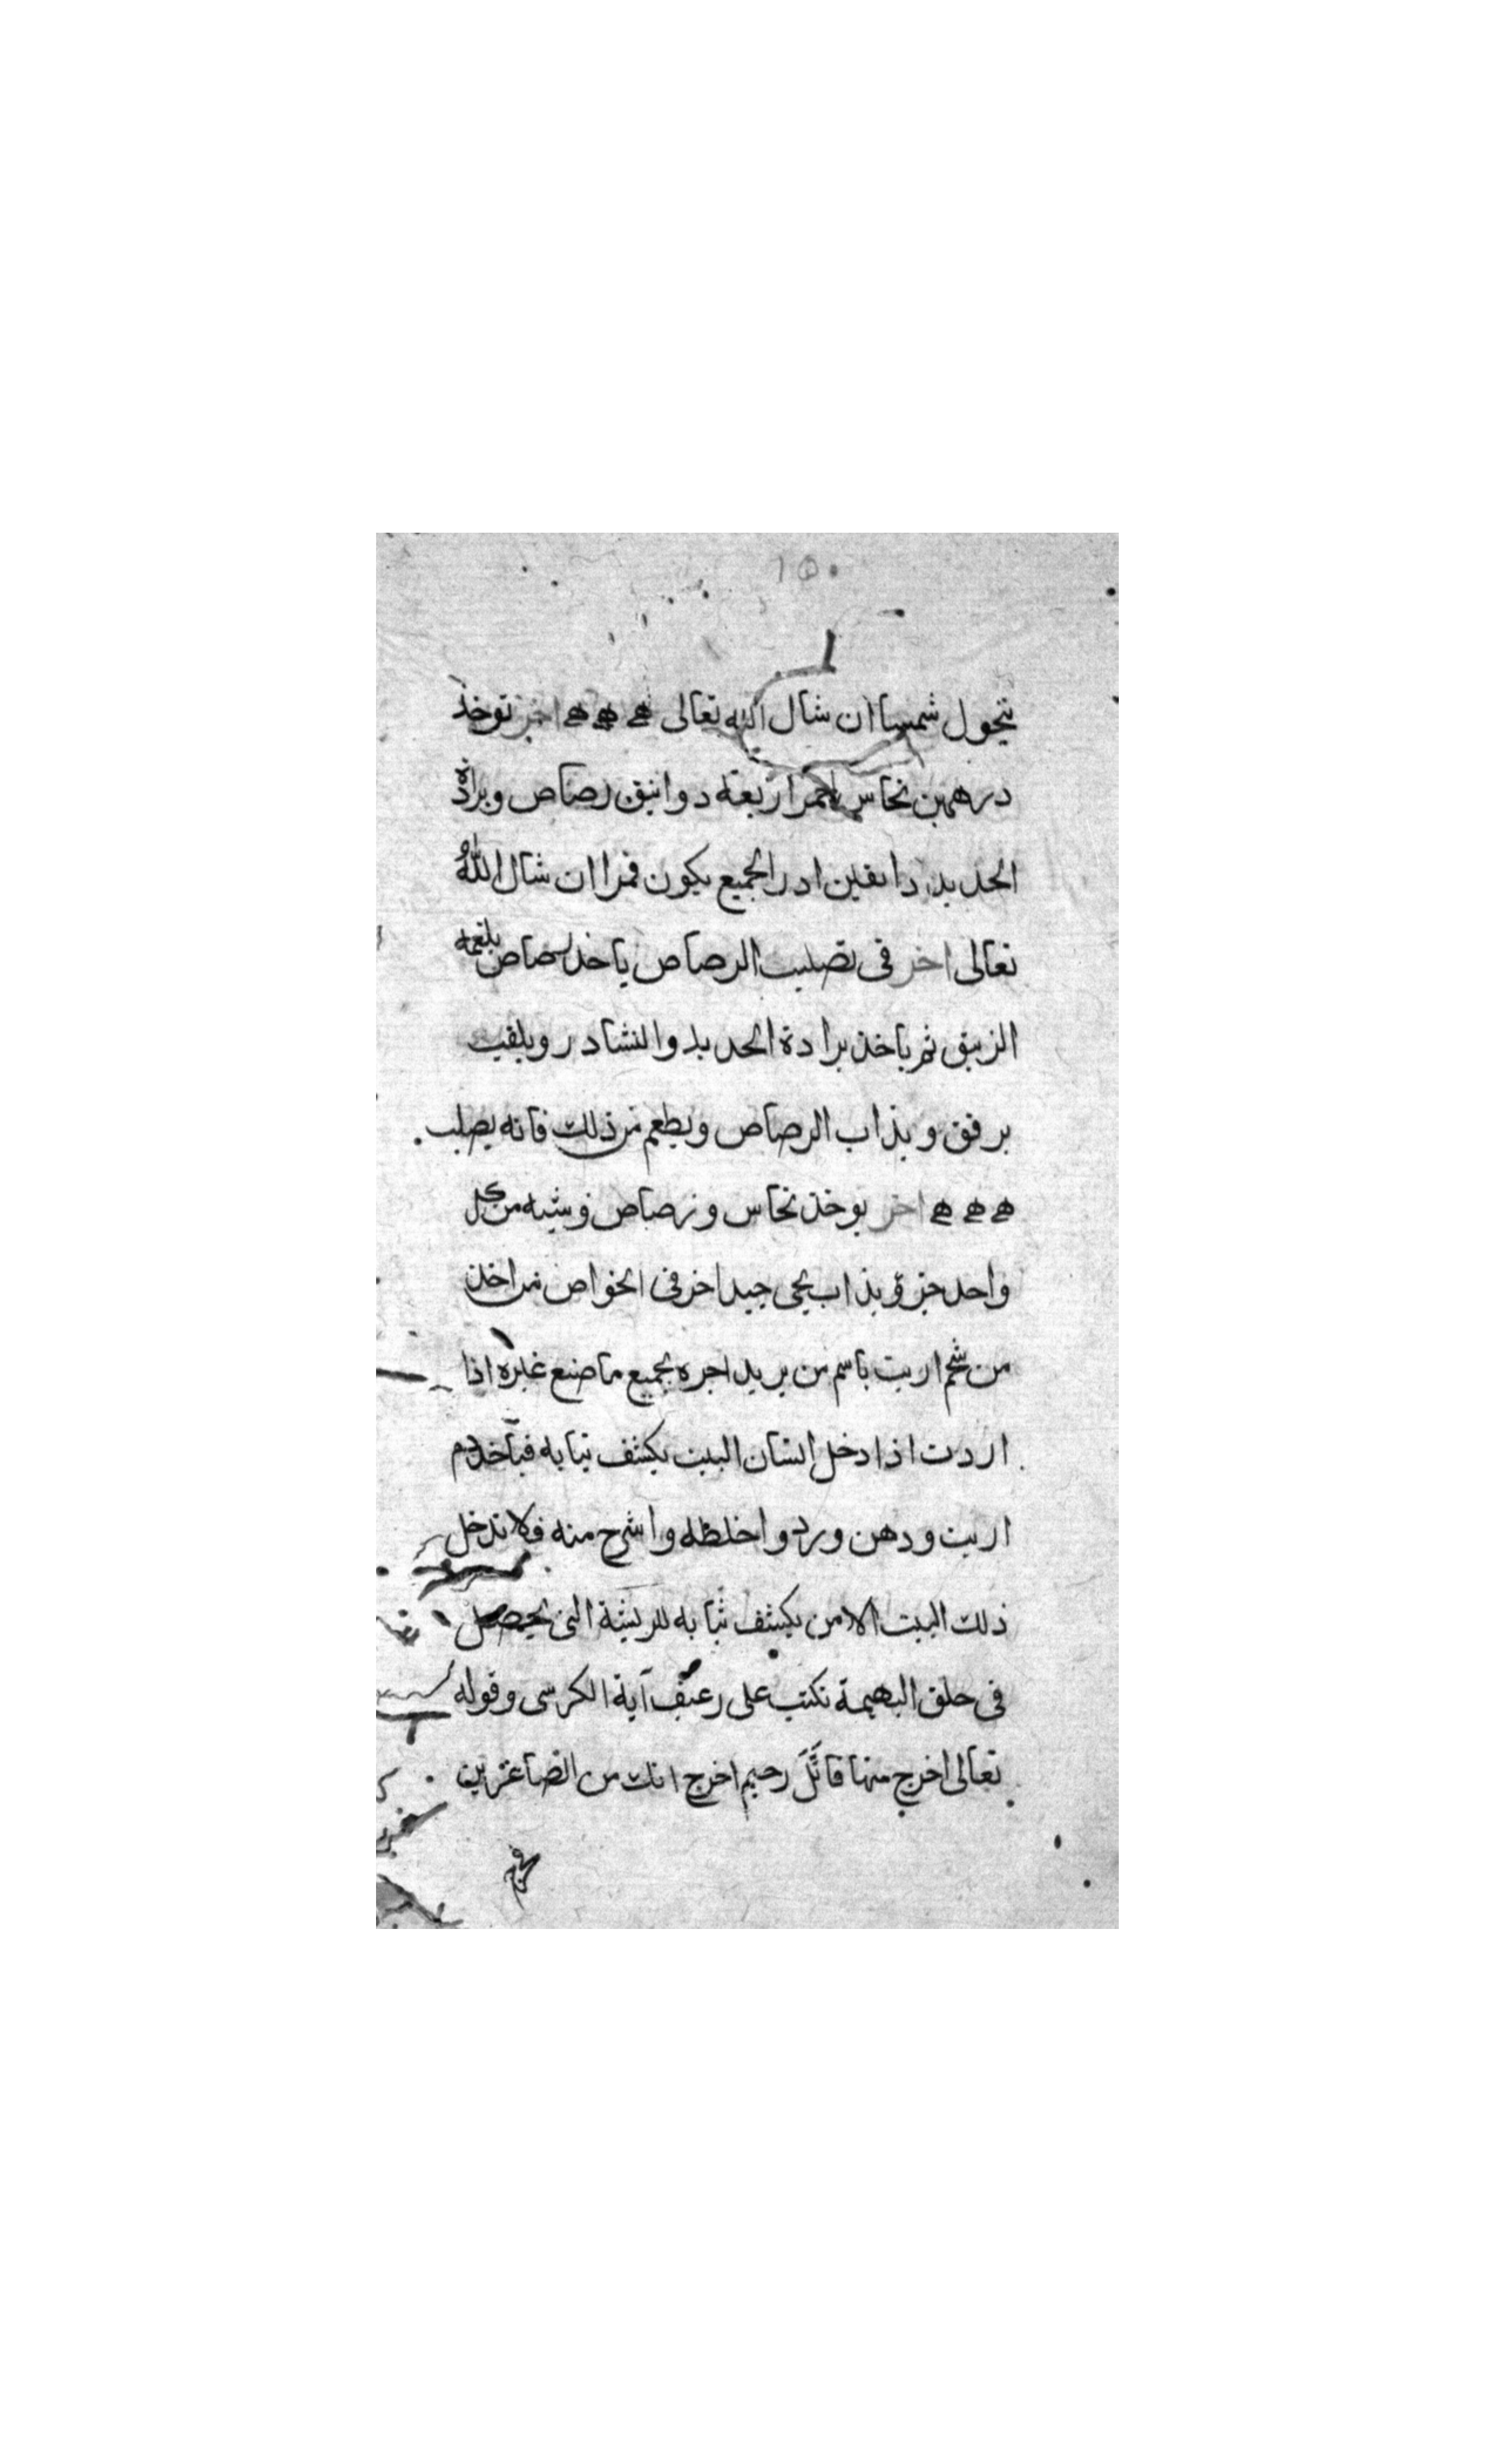 ١٥٠
يتحول شمسا ان شال الله تعالى ه ه ه اخر توخذ
درهمين نحاس احمر اربعة دوانيق رصاص وبرادة
الحديد دانقين ادر الجميع يكون قمرا ان شال الله
تعالى اخر فى تصليب الرصاص ياخذ رصاص يلغمه
الزيبق ثم ياخذ برادة الحديد والنشادر ويلقيه
برفق ويذاب الرصاص ويطعم من ذلك فانه يصلب
ه ه ه اخر يوخذ نحاس ورصاص وشبه من كل
واحد جزؤ يذاب يجى جيد اخر فى الخواص من اخذ
من شحم ارنب باسم من يريد اجره بجميع ما صنع غيره اذا
اردت اذا دخل انسان البيت يكشف ثيابه فياخذ دم
ارنب ودهن ورد واخلطه واشرح منه فلا تدخل
ذلك البيت الا من يكشف ثيابه للريشة التى يحصل
فى حلق البهيمة تكتب على رغيف آية الكرسى وقوله
تعالى اخرج منها رحيم اخرج انك من الصاغرين